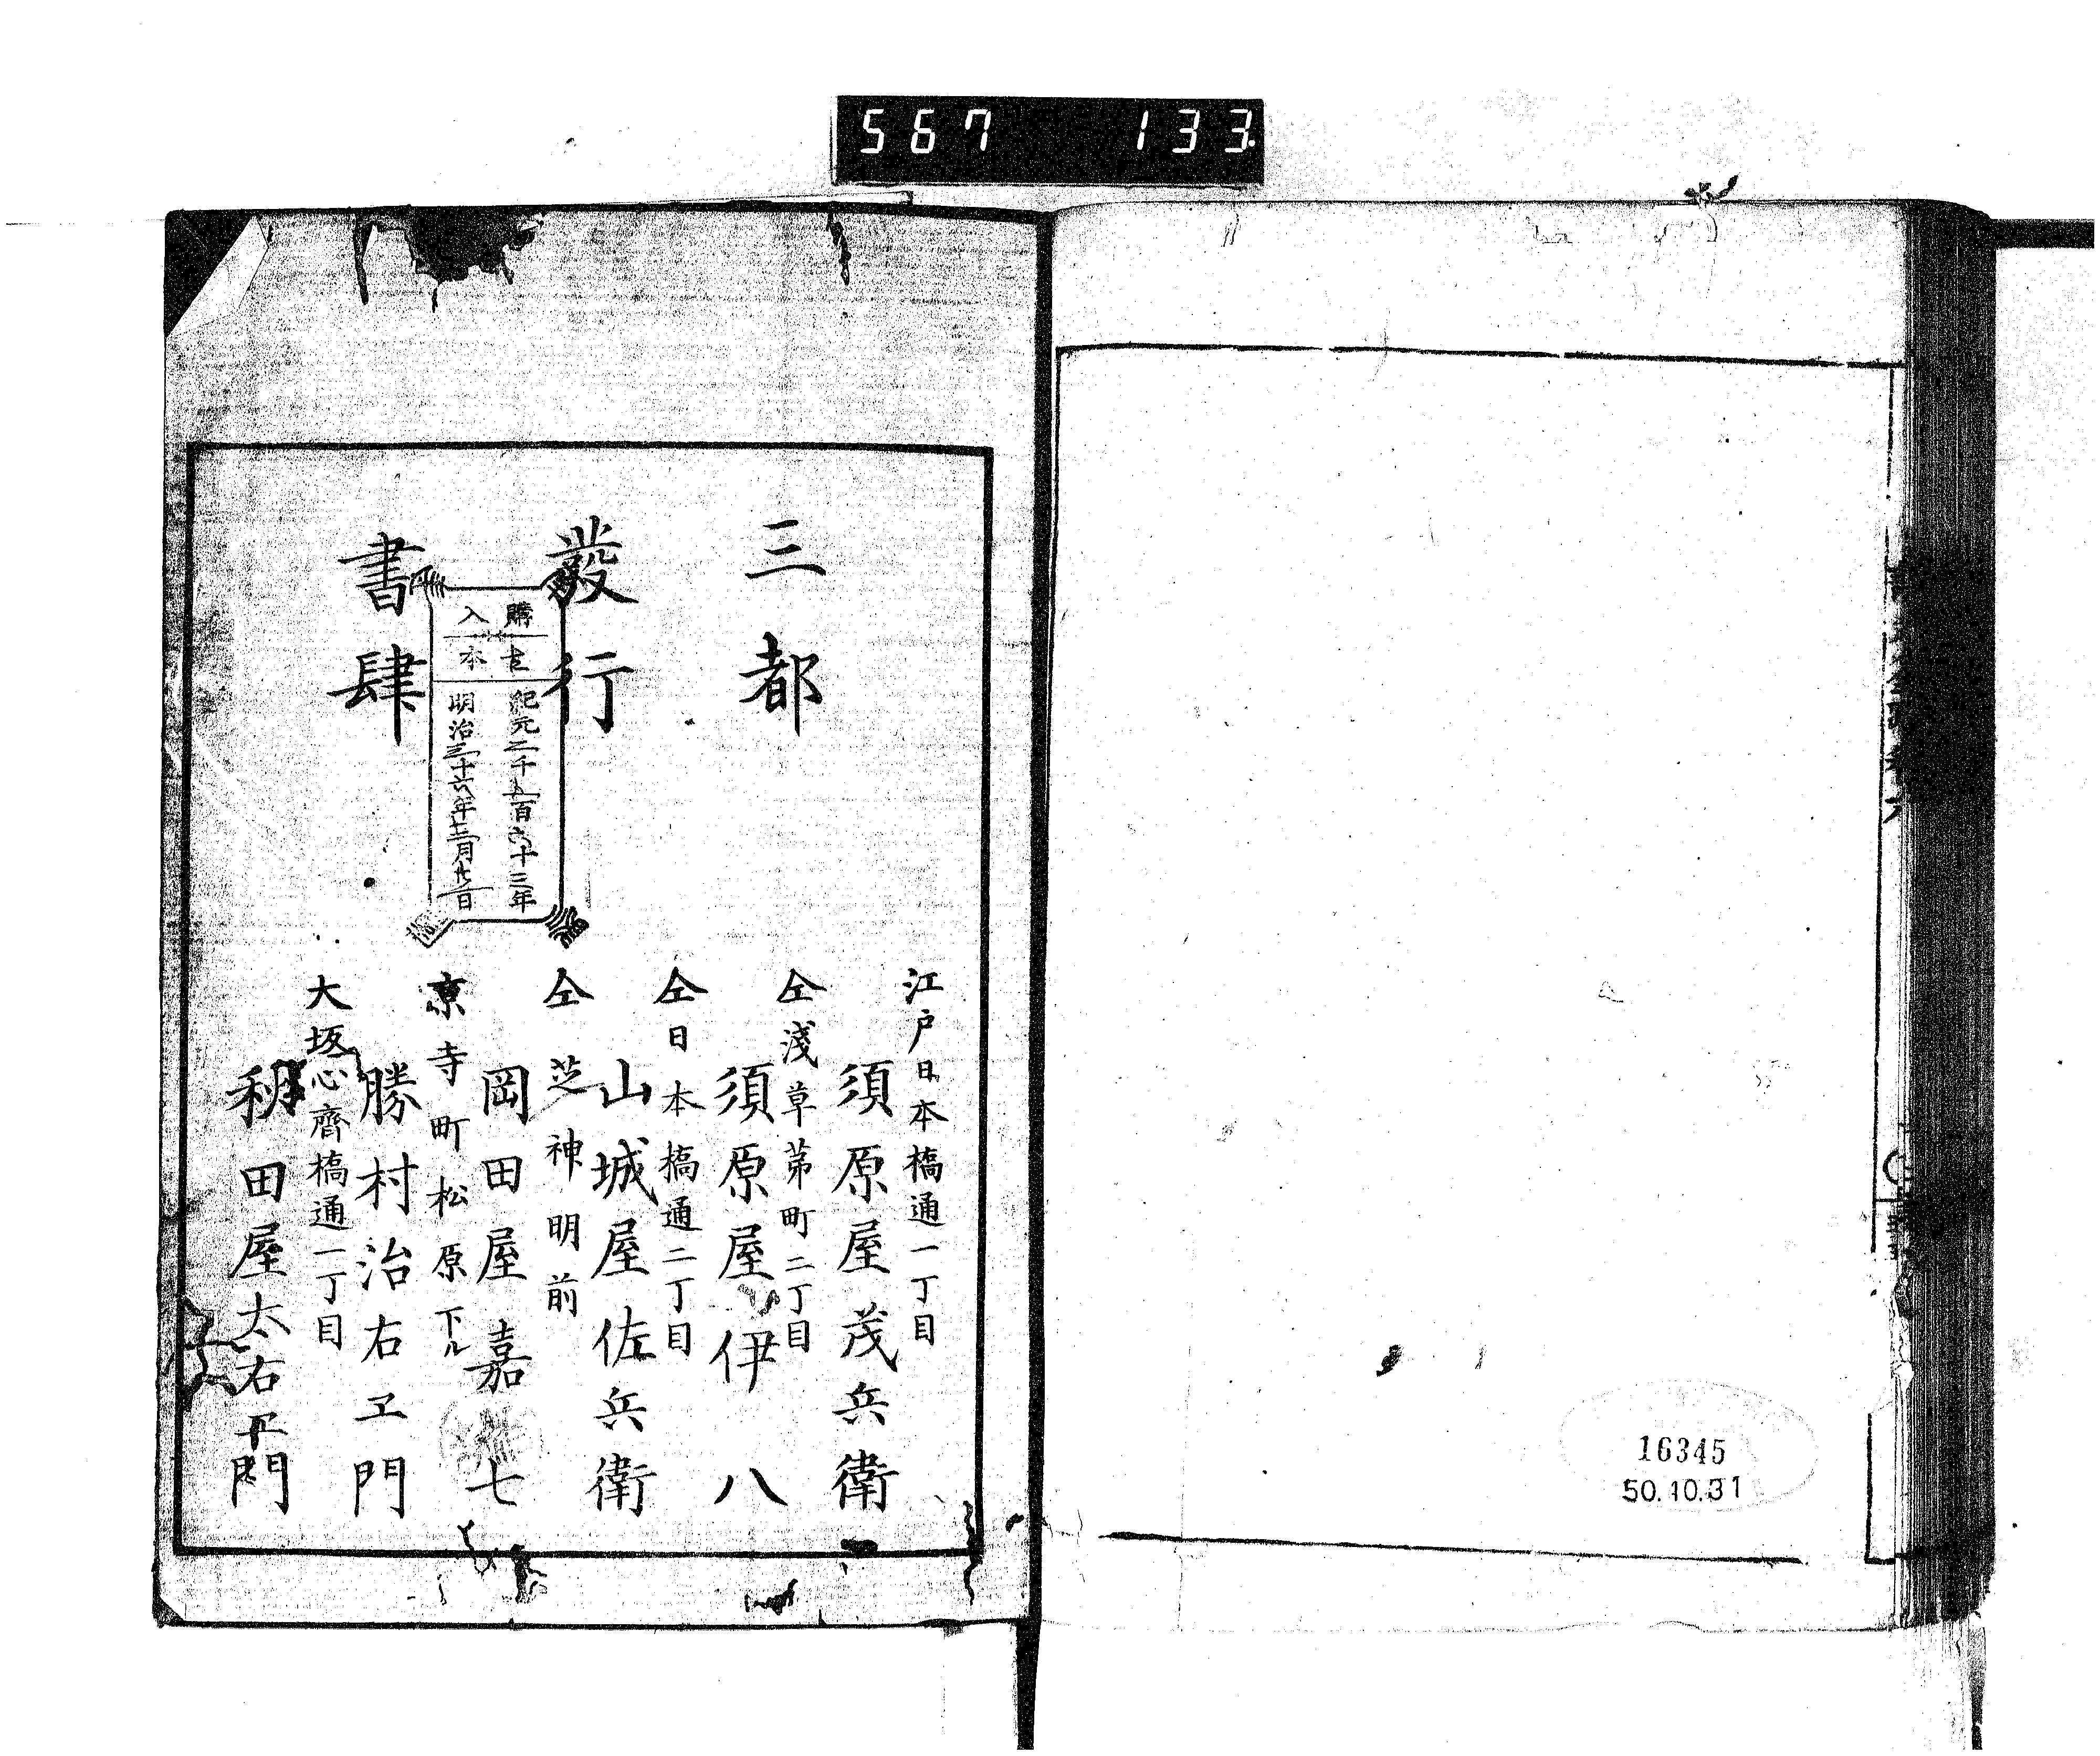 567 133.
16345
50.10.31
三都
發行
書肆
購入
古本
紀元二千五百六十三年
明治三十六年十二月廿一日
江戸日本橋通一丁目
須原屋茂兵衛
仝淺草茅町二丁目
須原屋伊八
仝日本橋通二丁目
山城屋佐兵衛
仝芝神明前
岡田屋嘉七
京寺町松原下ル
勝村治右ヱ門
大坂心齊橋通一丁目
秋田屋太右ヱ門